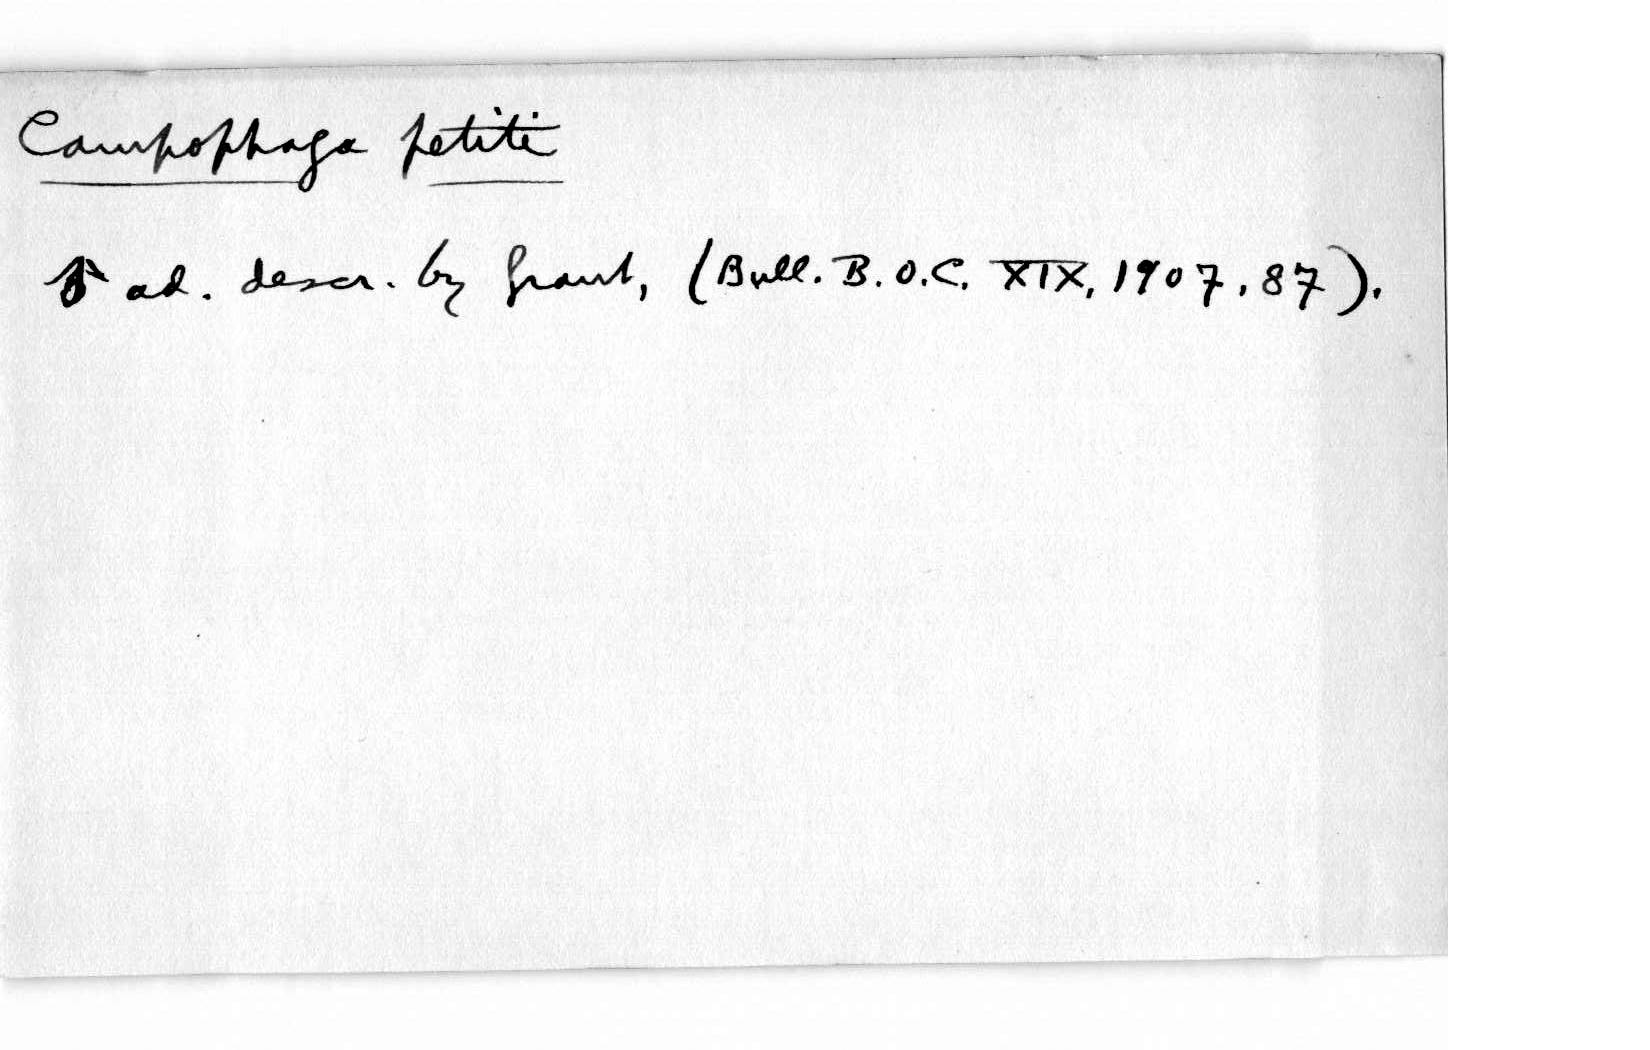 Campophaga petiti
♂ ad. descr. by Grant, (Bull. B.O.C. XIX, 1907, 87).